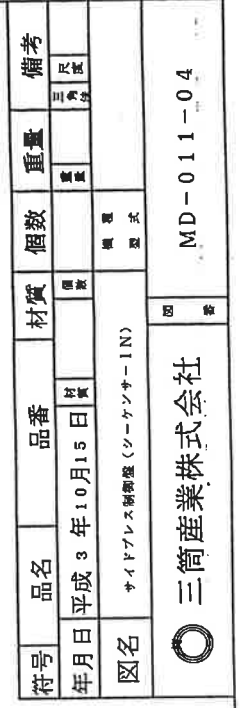 符号 品名 品番 材質 個数 重量 備考
年月日 平成 3 年10月15 日 材質 個数 重量 三角法 尺度
図名 サイドプレス制御盤 (シーケンサー IN) 機種 型式
三筒産業株式会社 図番 MD-011-04